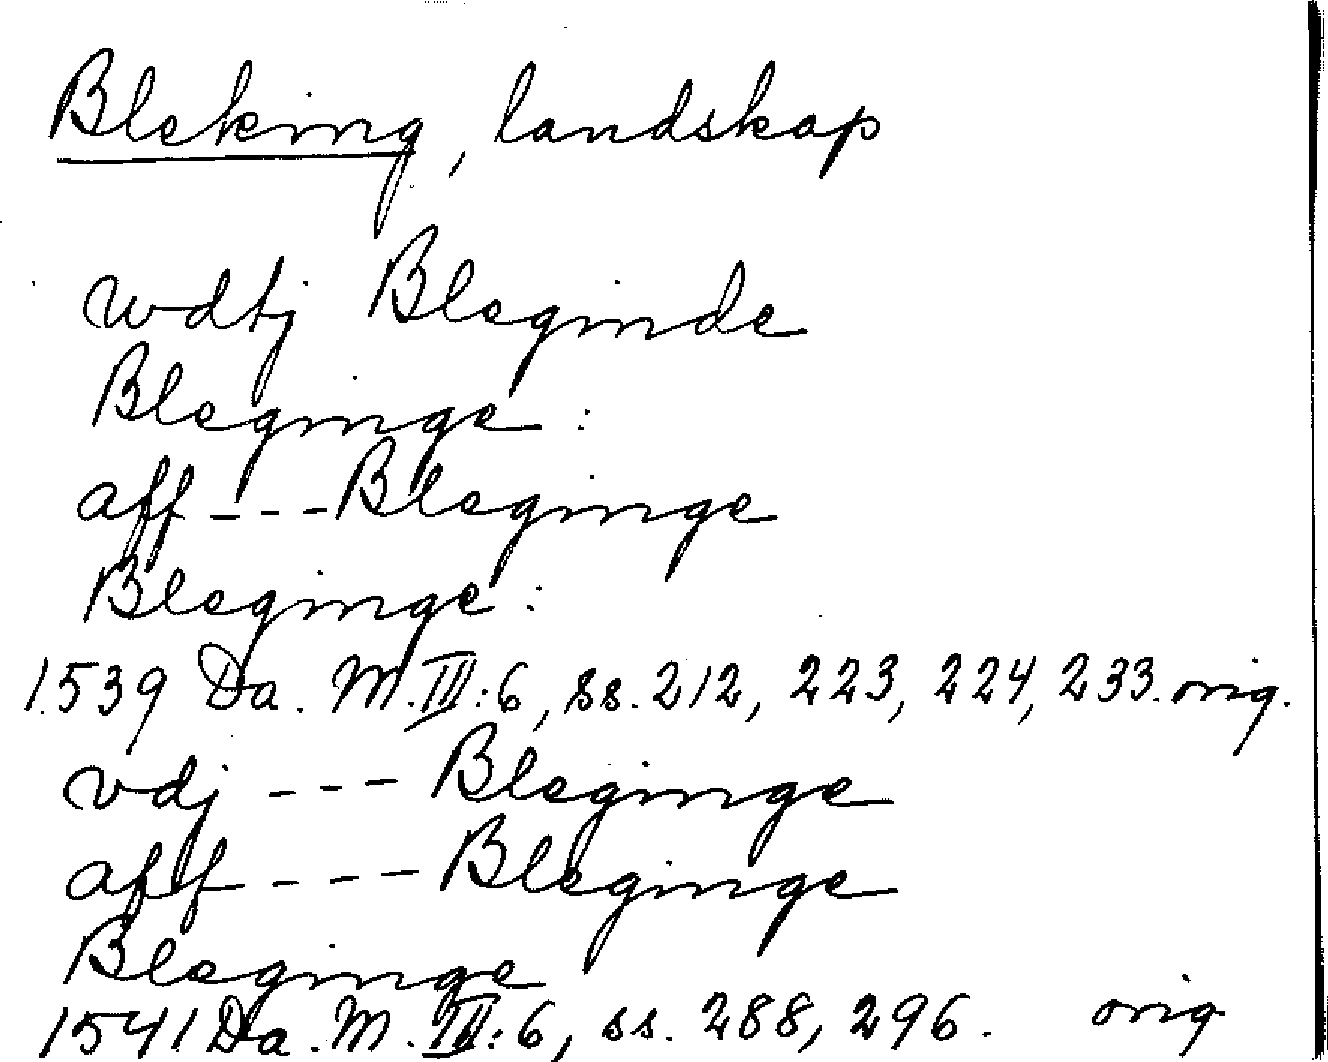 Bleking, landskap
wdtj Bleginde
Bleginge :
aff --- Bleginge
Bleginge :
1539 Da. M. III:6, ss. 212, 223, 224, 233. orig.
vdj --- Bleginge
aff --- Bleginge
Bleginge
1541 Da. M. III:6, ss. 288, 296. orig